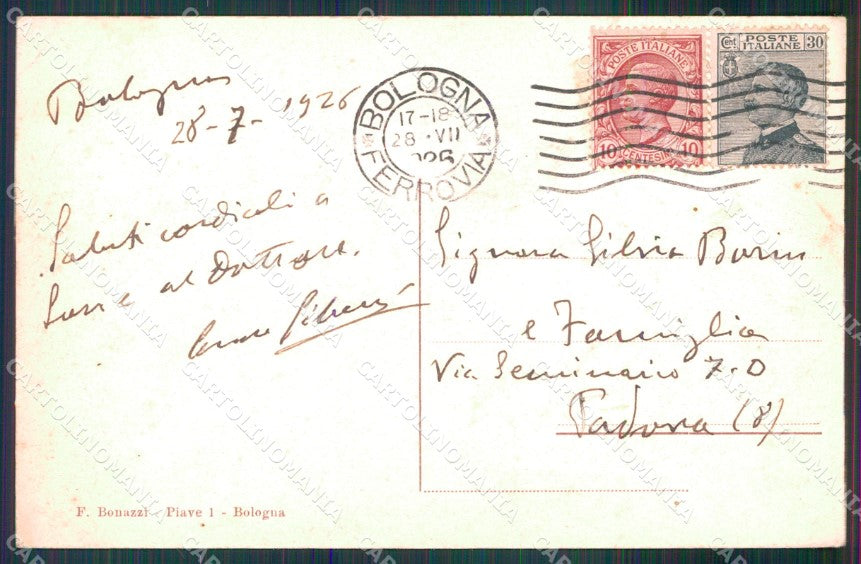 Bologna
28-7-1926
BOLOGNA
17-18
28 VII
926
FERROVIA
POSTE ITALIANE
10 CENTESIMI 10
Cent POSTE 30
ITALIANE
Saluti cordiali a
e al Dottore.
Signora Silvia Borin
e Famiglia
Via Seminario 7.D
Padova (8)
F. Bonazzi - Piave 1 - Bologna
CARTOLINOMANIA